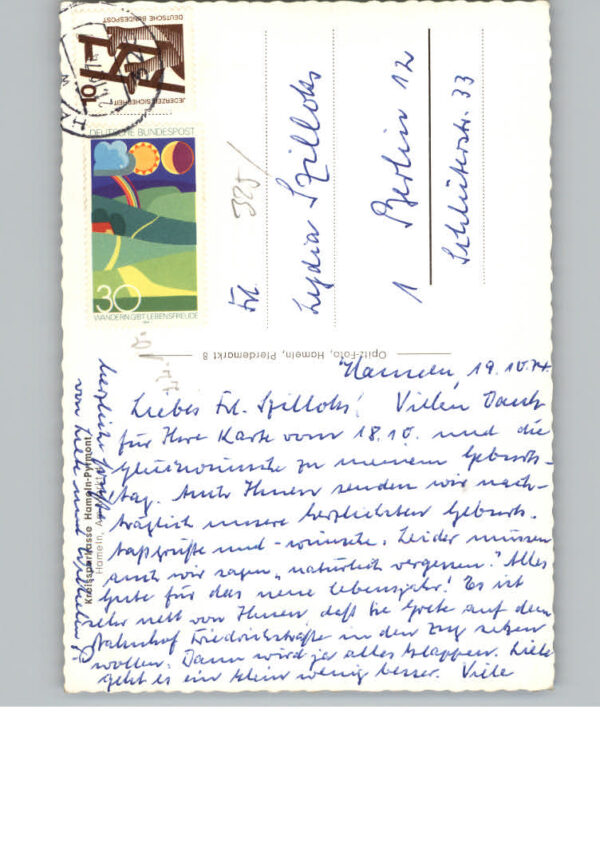 DEUTSCHE BUNDESPOST
10
JEDERZEIT SICHERHEIT
DEUTSCHE BUNDESPOST
30
WANDERN GIBT LEBENSFREUDE
325/
Frl.
Lydia Szilloks
1 Berlin 12
Schlüterstr. 33
Opitz-Foto, Hameln, Pferdemarkt 8
Kreissparkasse Hameln-Pyrmont
Hameln, 19.10.74
Liebes Frl. Szilloks! Vielen Dank
für Ihre Karte vom 18.10. und die
Glückwünsche zu meinem Geburts-
tag. Auch Ihnen senden wir nach-
träglich unsere herzlichsten Geburts-
tagsgrüße und -wünsche. Leider müssen
auch wir sagen „natürlich vergessen." Alles
Gute für das neue Lebensjahr! Es ist
sehr nett von Ihnen, daß Sie Grete auf dem
Bahnhof Friedrichstraße in den Zug setzen
wollen. Dann wird ja alles klappen. Liele
geht es ein klein wenig besser. Viele
herzliche Grüße
von Liele und Wilhelm